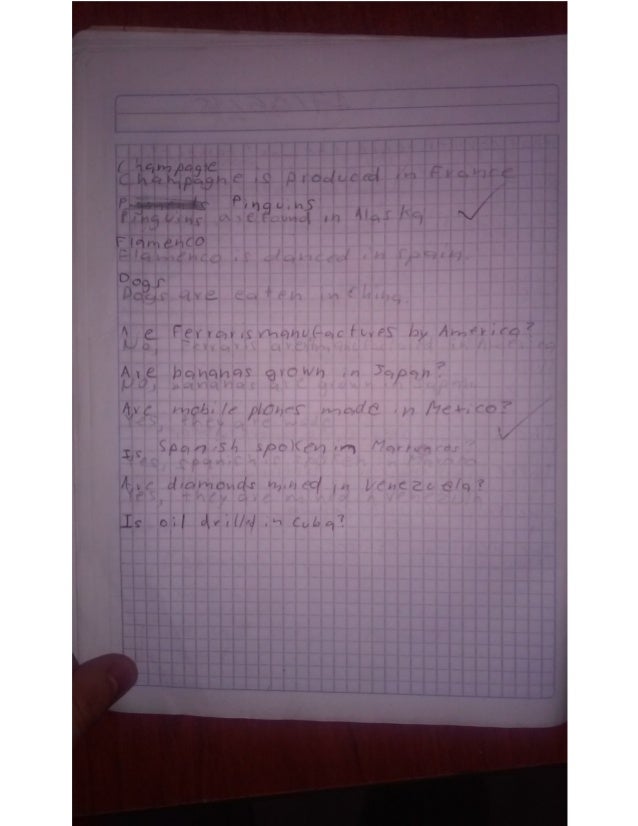 Champagne
Champagne is produced in France
Pinguins
Pinguins are found in Alaska
Flamenco
Flamenco is danced in spain.
Dogs
Dogs are eaten in China.
Are Ferraris manufactures by America?
No, Ferraris are
Are bananas grown in Japan?
No, bananas are grown Japan
Are mobile phones made in Mexico?
Yes, they are made
Is, Spanish spoken in
Yes, spanish is spoken in
Are diamonds mined in Venezuela?
Yes, they are
Is oil drilld in Cuba?